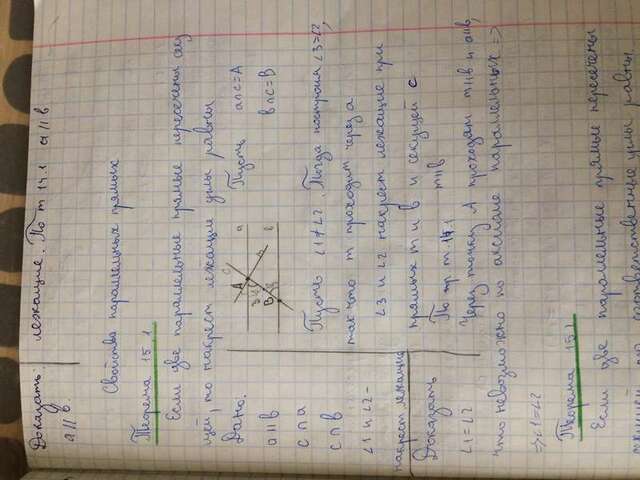 Доказать
а || в
лежащие. По т 14.1 а || в
Свойства параллельных прямых
Теорема 15.1
Если две параллельные прямые пересечены секу
щей, то накрест лежащие углы равны
Дано:
а || в
с ∩ а
с ∩ в
∠1 и ∠2 -
накрест лежащие
Доказать
∠1=∠2
с
A
a
m
3
1
2
B
b
Пусть а∩с=А
в∩с=В
Пусть ∠1≠∠2. Тогда построим ∠3=∠2,
так что m проходит через а
∠3 и ∠2 накрест лежащие при
прямых m и в и секущей с
По т. 14.1 m||в
Через точку А проходят m||в и а||в,
что невозможно по аксиоме параллельных =>
=> ∠1=∠2
Теорема 15.2
Если две параллельные прямые пересечены
соответственные углы равны